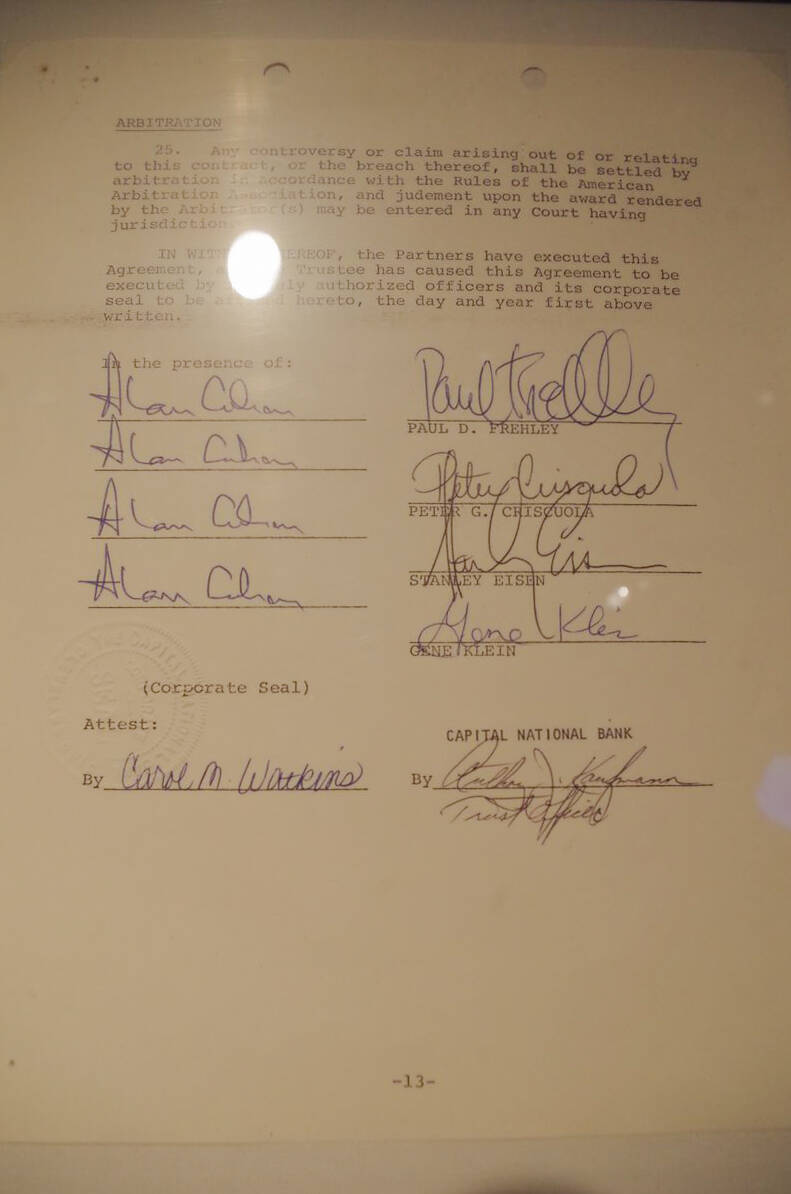 ARBITRATION
25. Any controversy or claim arising out of or relating
to this contract, or the breach thereof, shall be settled by
arbitration in accordance with the Rules of the American
Arbitration Association, and judement upon the award rendered
by the Arbitrator(s) may be entered in any Court having
jurisdiction.
IN WITNESS WHEREOF, the Partners have executed this
Agreement, Trustee has caused this Agreement to be
executed by authorized officers and its corporate
seal to be affixed hereto, the day and year first above
written.
In the presence of:
Alan
PAUL D. FREHLEY
Alan
Peter Criscuola
PETER G. CRISCUOLA
Alan
STANLEY EISEN
Alan
Gene Klein
GENE KLEIN
(Corporate Seal)
Attest:
CAPITAL NATIONAL BANK
By Carol M. Watkins
By Anthony J. Kaufmann
Trust Officer
-13-